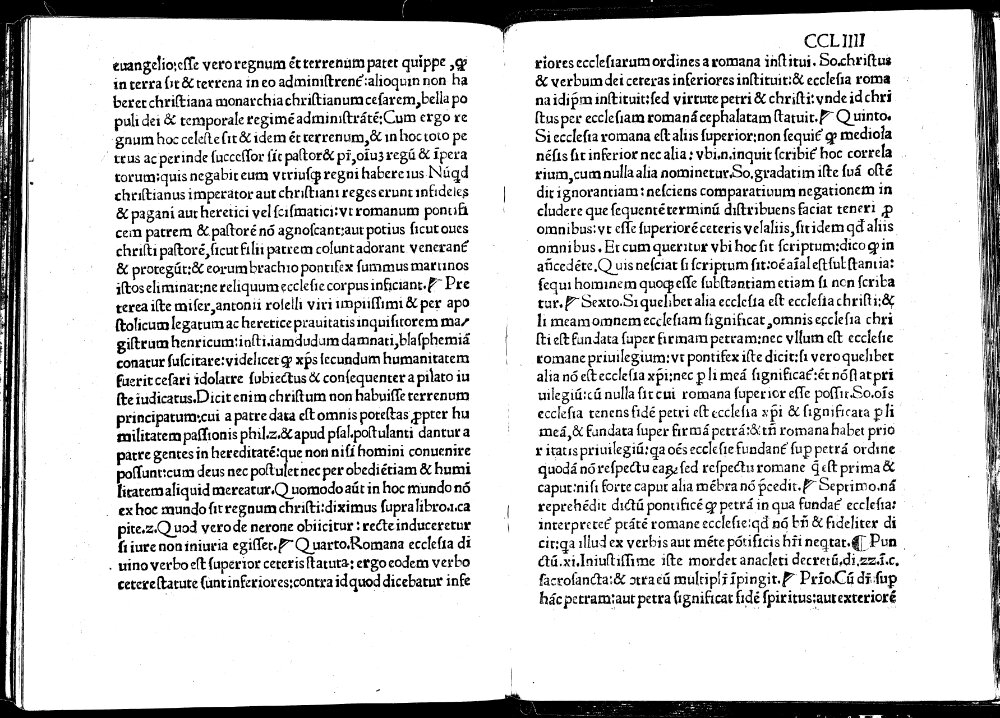 euangelio:esse vero regnum ēt terrenum patet quippe , ꝙ
in terra sit & terrena in eo administrenť:alioquin non ha
beret christiana monarchia christianum cesarem,bella po
puli dei & temporale regimē administrātē;Cum ergo re
gnum hoc celeste sit & idem ēt terrenum,& in hoc toto pe
trus ac perinde successor sit pastor& pr̄,oīuʒ regū & īpera
torum:quis negabit eum vtriusqꝫ regni habere ius Nūqd
christianus imperator aut christiani reges erunt infideles
& pagani aut heretici vel scismatici:vt romanum pontifi
cem patrem & pastorē nō agnoscant:aut potius sicut oues
christi pastorē,sicut filii patrem colunt adorant veneranť
& protegūt:& eorum brachio pontifex summus martinos
istos eliminat:ne reliquum ecclesie corpus inficiant.¶ Pre
terea iste miser,antonii roselli viri impiissimi & per apo
stolicum legatum ac heretice prauitatis inquisitorem ma/
gistrum henricum:insti.iamdudum damnati,blasphemiā
conatur suscitare:videlicet ꝙ xp̄s secundum humanitatem
fuerit cesari idolatre subiectus & consequenter a pilato iu
ste iudicatus.Dicit enim christum non habuisse terrenum
principatum:cui a patre data est omnis potestas ꝓpter hu
militatem passionis phil.z.& apud psal.postulanti dantur a
patre gentes in hereditatē:que non nisi homini conuenire
possunt:cum deus nec postulet nec per obediētiam & humi
litatem aliquid mereatur.Quomodo aūt in hoc mundo nō
ex hoc mundo sit regnum christi:diximus supra libro.1.ca
pite.z.Quod vero de nerone obiicitur : recte induceretur
si iure non iniuria egisset.¶ Quarto.Romana ecclesia di
uino verbo est superior ceteris statuta: ergo eodem verbo
cetere statute sunt inferiores:contra id quod dicebatur infe
CCLIIII
riores ecclesiarum ordines a romana institui. So.christus
& verbum dei ceteras inferiores instituit:& ecclesia roma
na idipm̄ instituit:sed virtute petri & christi:vnde id chri
stus per ecclesiam romanā cephalatam statuit.¶ Quinto.
Si ecclesia romana est aliis superior:non sequiť ꝙ mediola
nēsis sit inferior nec alia: vbi.n.inquit scribiť hoc correla
rium,cum nulla alia nominetur.So.gradatim iste suā ostē
dit ignorantiam: nesciens comparatiuum negationem in
cludere que sequentē terminū distribuens faciat teneri ꝓ
omnibus:vt esse superiorē ceteris vel aliis,sit idem qd̄ aliis
omnibus. Et cum queritur vbi hoc sit scriptum:dico ꝙ in
añcedēte.Quis nesciat si scriptum sit:oē aīal est substantia:
sequi hominem quoqꝫ esse substantiam etiam si non scriba
tur.¶ Sexto.Si quelibet alia ecclesia est ecclesia christi:&
li meam omnem ecclesiam significat,omnis ecclesia chri
sti est fundata super firmam petram:nec vllum est ecclesie
romane priuilegium:vt pontifex iste dicit:si vero quelibet
alia nō est ecclesia xp̄i:nec ꝑ li meā significať:ēt nō stat pri
uilegiū:cū nulla sit cui romana superior esse possit.So.oīs
ecclesia tenens fidē petri est ecclesia xp̄i & significata ꝑ li
meā,& fundata super firmā petrā:& tñ romana habet prio
ritatis priuilegiū:qa oēs ecclesie fundanť sup petrā ordine
quodā nō respectu eaꝝ sed respectu romane q̄ est prima &
caput:nisi forte caput alia mēbra nō p̄cedit.¶ Septimo.nā
reprehēdit dictū pontificē ꝙ petrā in qua fundať ecclesia:
interpreteť ptātē romane ecclesie:qd̄ nō bñ & fideliter di
cit:qa illud ex verbis aut mēte pōtificis hr̄i neqtat.¶ Pun
ctū.xi.Iniustissime iste mordet anacleti decretū.di.zz.ī.c.
sacrosancta:& ↄtra eū multipl'r īpingit.¶ Prīo.Cū dr̄ sup
hāc petram:aut petra significat fidē spiritus:aut exteriorē